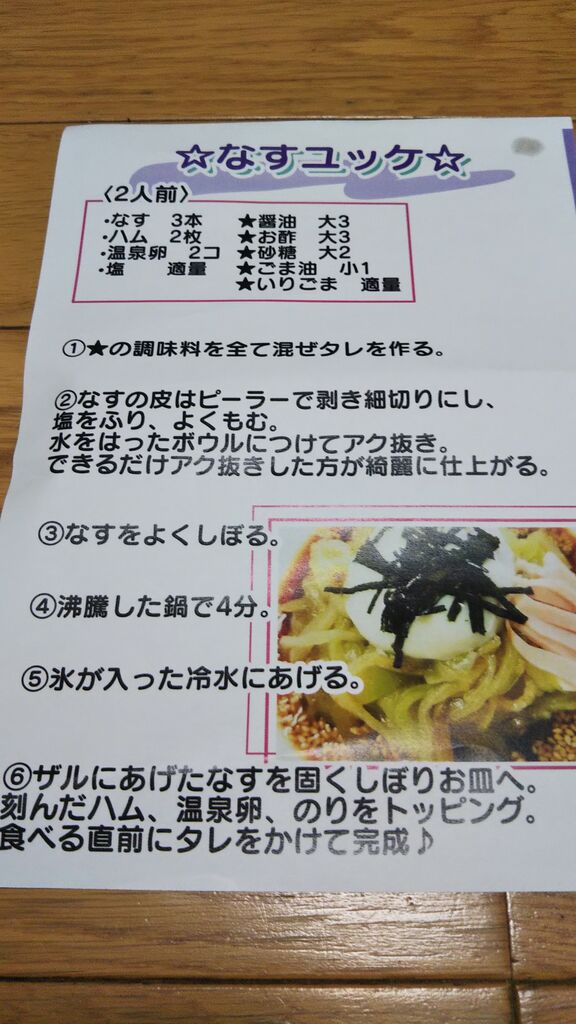 ☆なすユッケ☆
〈2人前〉
・なす 3本 ★醤油 大3
・ハム 2枚 ★お酢 大3
・温泉卵 2コ ★砂糖 大2
・塩 適量 ★ごま油 小1
★いりごま 適量
①★の調味料を全て混ぜタレを作る。
②なすの皮はピーラーで剥き細切りにし、
塩をふり、よくもむ。
水をはったボウルにつけてアク抜き。
できるだけアク抜きした方が綺麗に仕上がる。
③なすをよくしぼる。
④沸騰した鍋で4分。
⑤氷が入った冷水にあげる。
⑥ザルにあげたなすを固くしぼりお皿へ。
刻んだハム、温泉卵、のりをトッピング。
食べる直前にタレをかけて完成♪